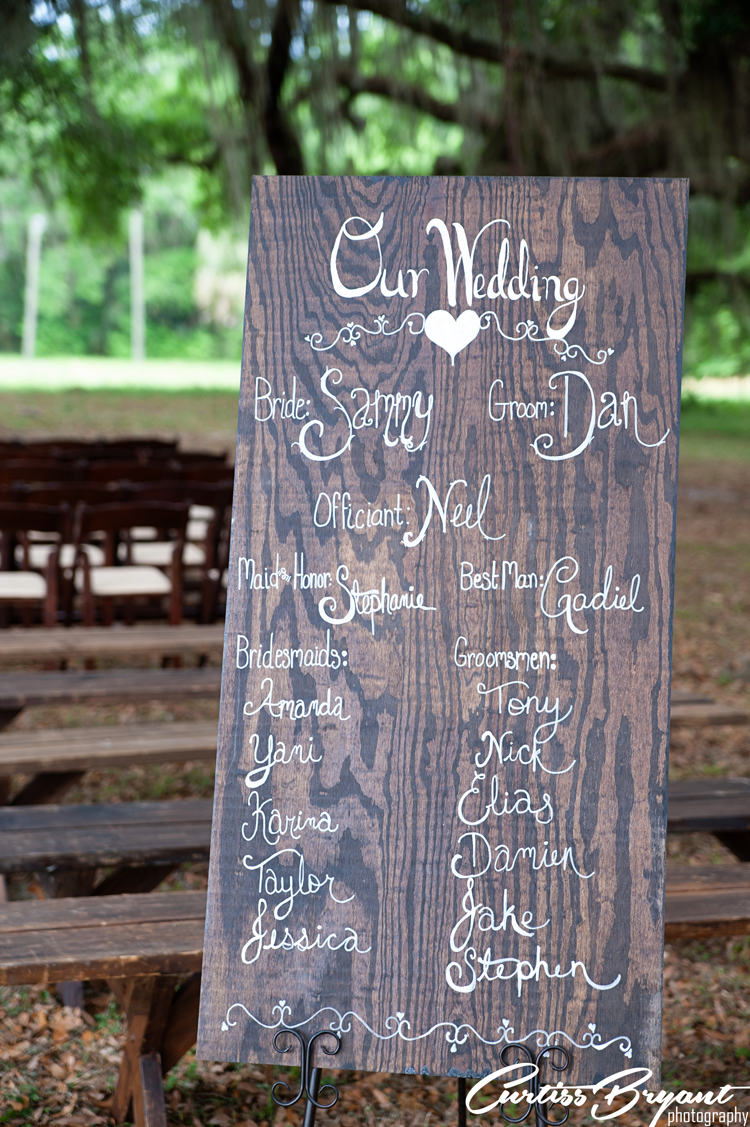 Our Wedding
Bride: Sammy Groom: Dan
Officiant: Neel
Maid of Honor: Stephanie Best Man: Gadiel
Bridesmaids: Groomsmen:
Amanda Tony
Yani Nick
Karina Elias
Taylor Damien
Jessica Jake
Stephen
Curtiss Bryant
photography